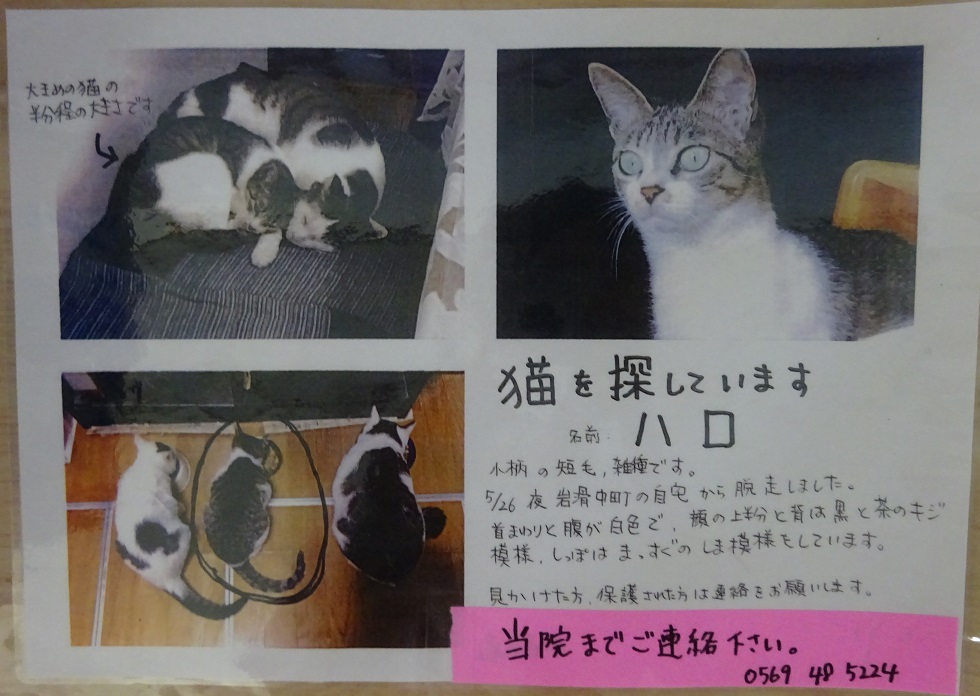 大きめの猫の
半分程の大きさです
猫を探しています
名前: ハロ
小柄の短毛、雑種です。
5/26 夜 岩滑中町の自宅から脱走しました。
首まわりと腹が白色で、顔の上半分と背は黒と茶のキジ
模様、しっぽはまっすぐのしま模様をしています。
見かけた方、保護された方は連絡をお願いします。
当院までご連絡下さい。
0569 48 5224